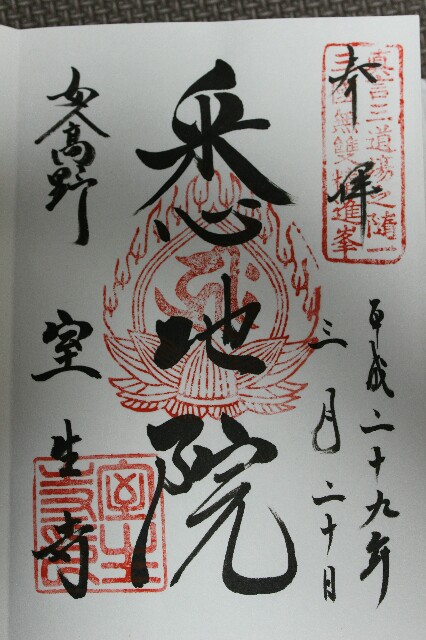 奉拝
真言三道場之随一
三国無雙精進峯
平成二十九年
三月二十日
悉地院
女人高野
室生寺